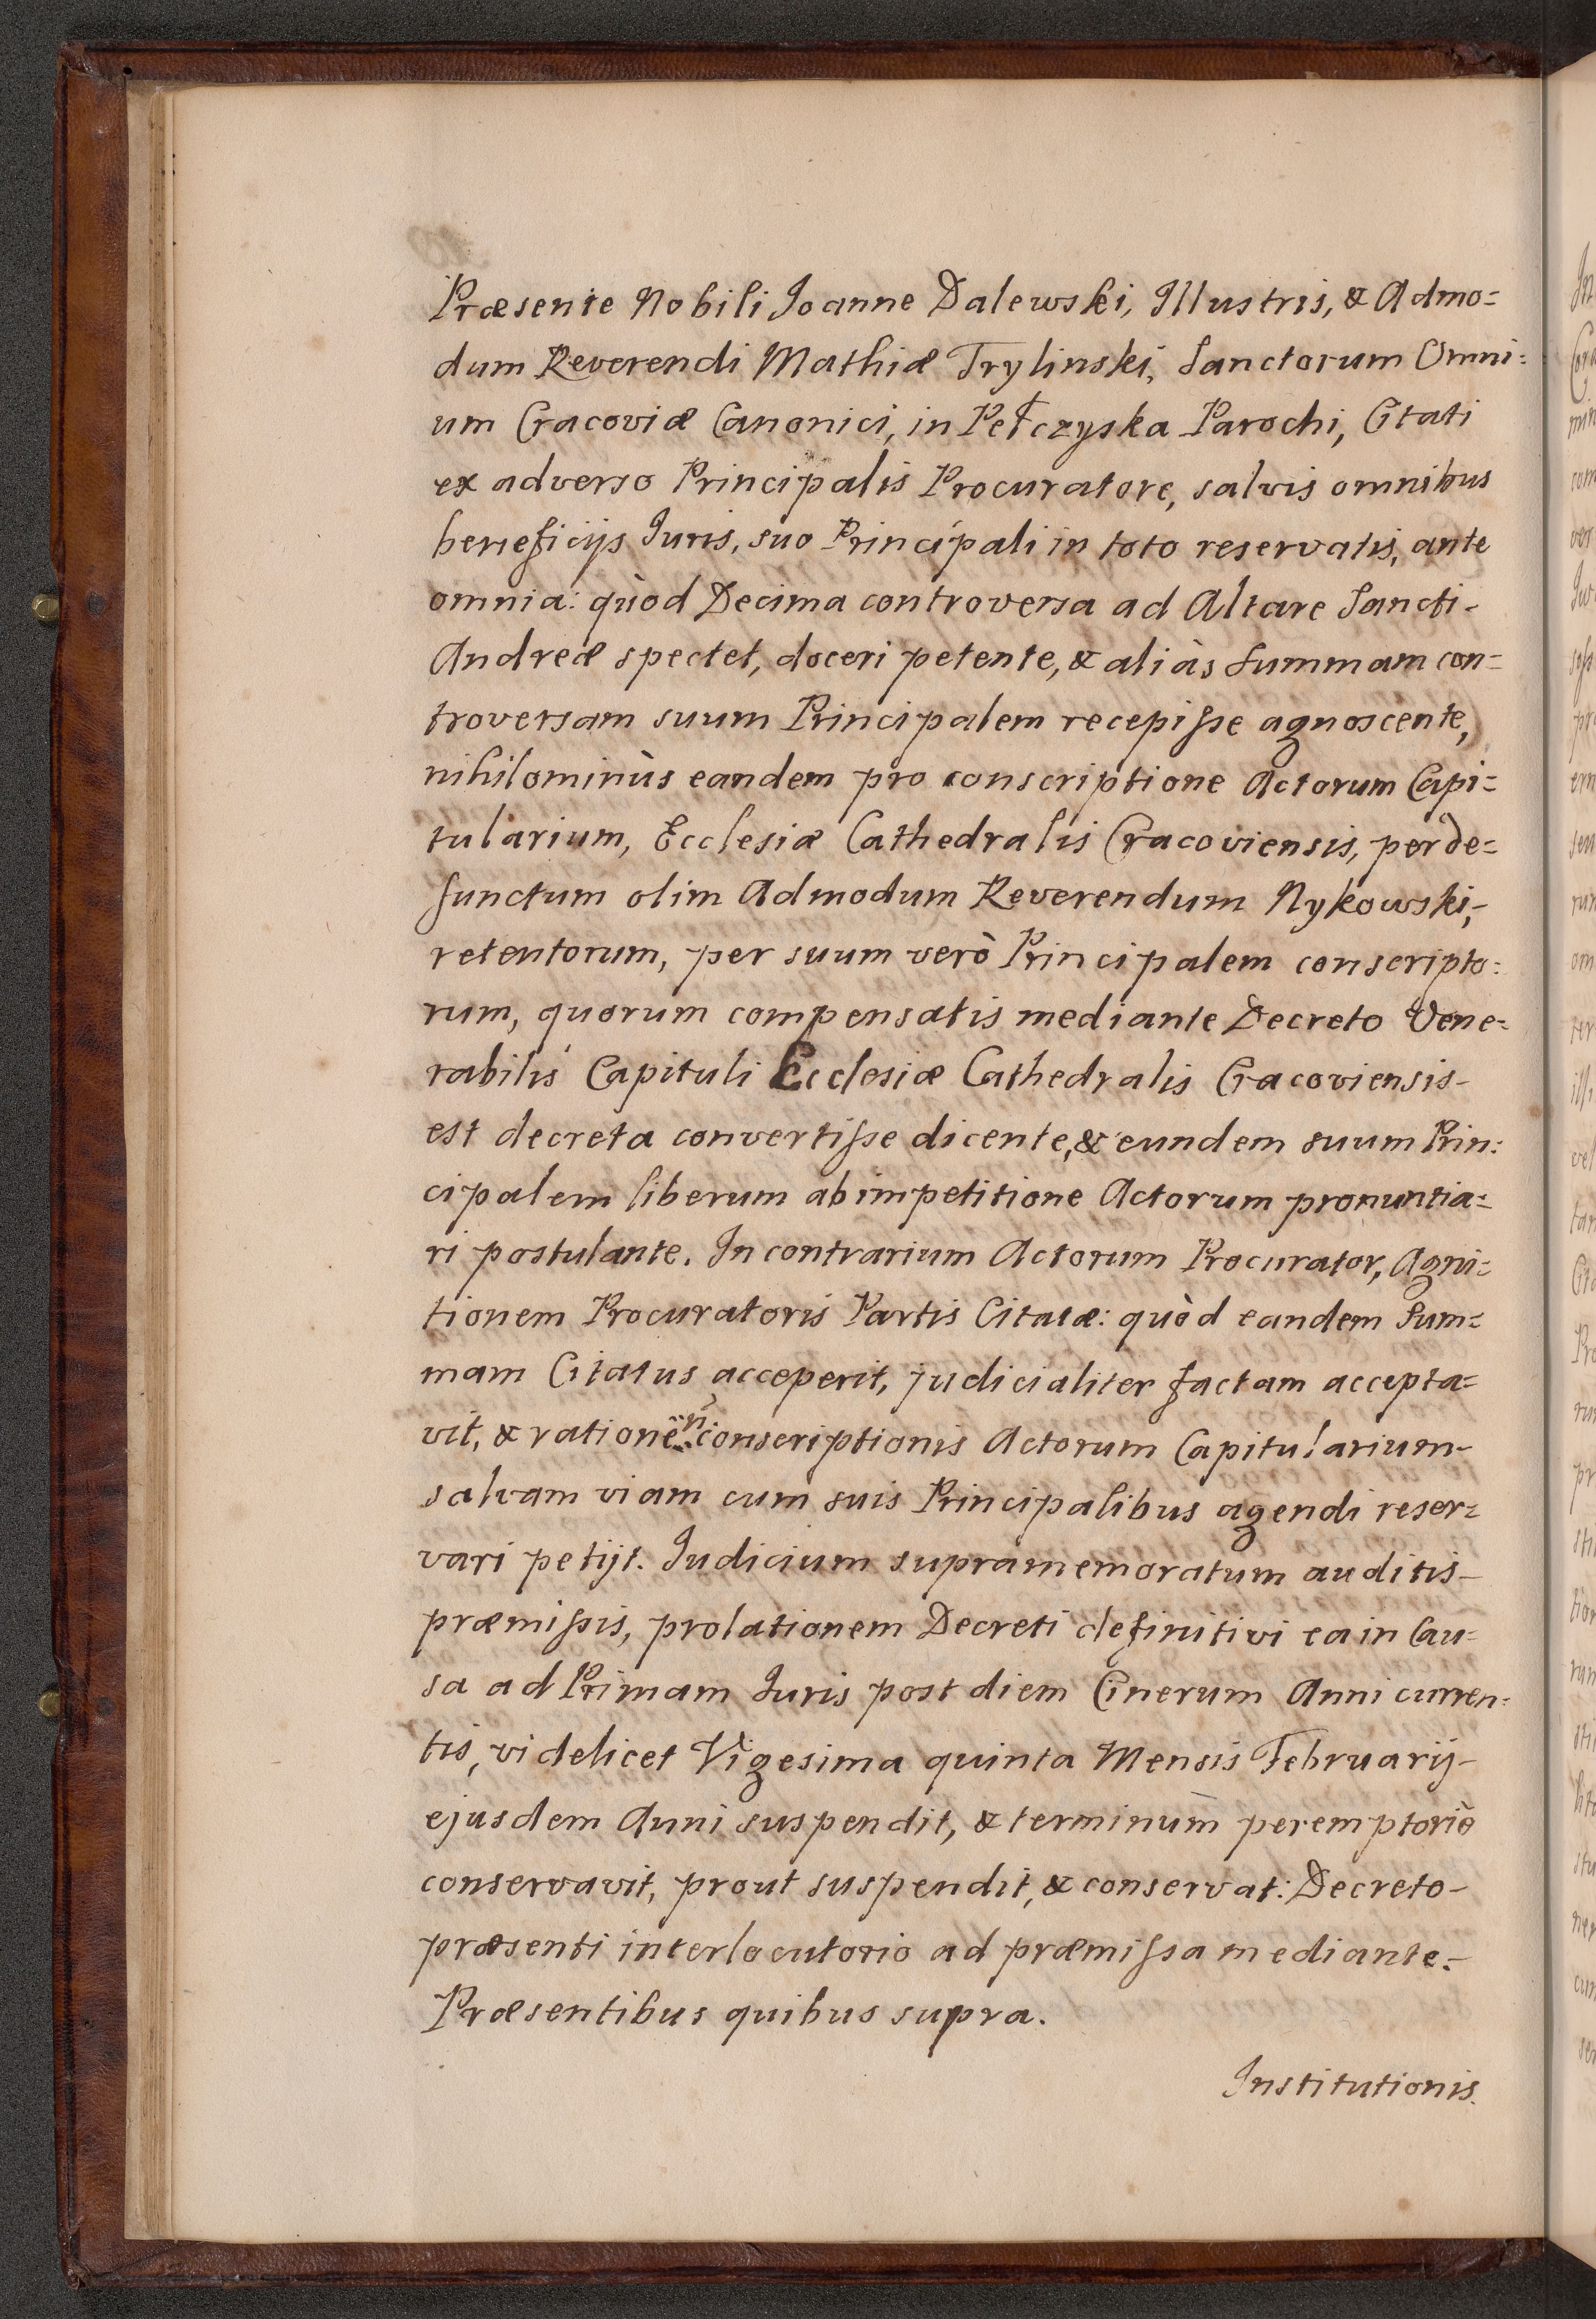 Præsente Nobili Joanne Dalewski, Illustris, & Admo=
dum Reverendi Mathiæ Trylinski, Sanctorum Omni=
um Cracoviæ Canonici, in Pełczyska Parochi, Citati
ex adverso Principalis Procuratore, salvis omnibus
beneficijs Iuris, suo Principali in toto reservatis, ante
omnia: quòd Decima controversa ad Altare Sancti-
Andreæ spectet, doceri petente, & aliàs Summam con=
troversam suum Principalem recepisse agnoscente,
nihilominùs eandem pro conscriptione Actorum Capi=
tularium, Ecclesiæ Cathedralis Cracoviensis, per de=
functum olim Admodum Reverendum Nykowski,-
retentorum, per suum verò Principalem conscripto=
rum, quorum compensatis mediante Decreto Vene=
rabilis Capituli Ecclesiæ Cathedralis Cracoviensis-
est decreta convertisse dicente, & eundem suum Prin=
cipalem liberum ab impetitione Actorum pronuntia=
ri postulante. In contrarium Actorum Procurator, Agni=
tionem Procuratoris Partis Citatæ: quòd eandem Sum=
mam Citatus acceperit, judicialiter factam accepta=
vit, & ratione conscriptionis Actorum Capitularium-
salvam viam cum suis Principalibus agendi reser=
vari petijt. Iudicium supràmemoratum auditis-
præmissis, prolationem Decreti definitivi ea in Cau=
sa ad Primam Iuris post diem Cinerum Anni curren=
tis, videlicet Vigesima quinta Mensis Februarij-
ejusdem Anni suspendit, & terminum peremptoriè
conservavit, prout suspendit, & conservat: Decreto-
præsenti interlocutorio ad præmissa mediante.-
Præsentibus quibus supra.
Institutionis.